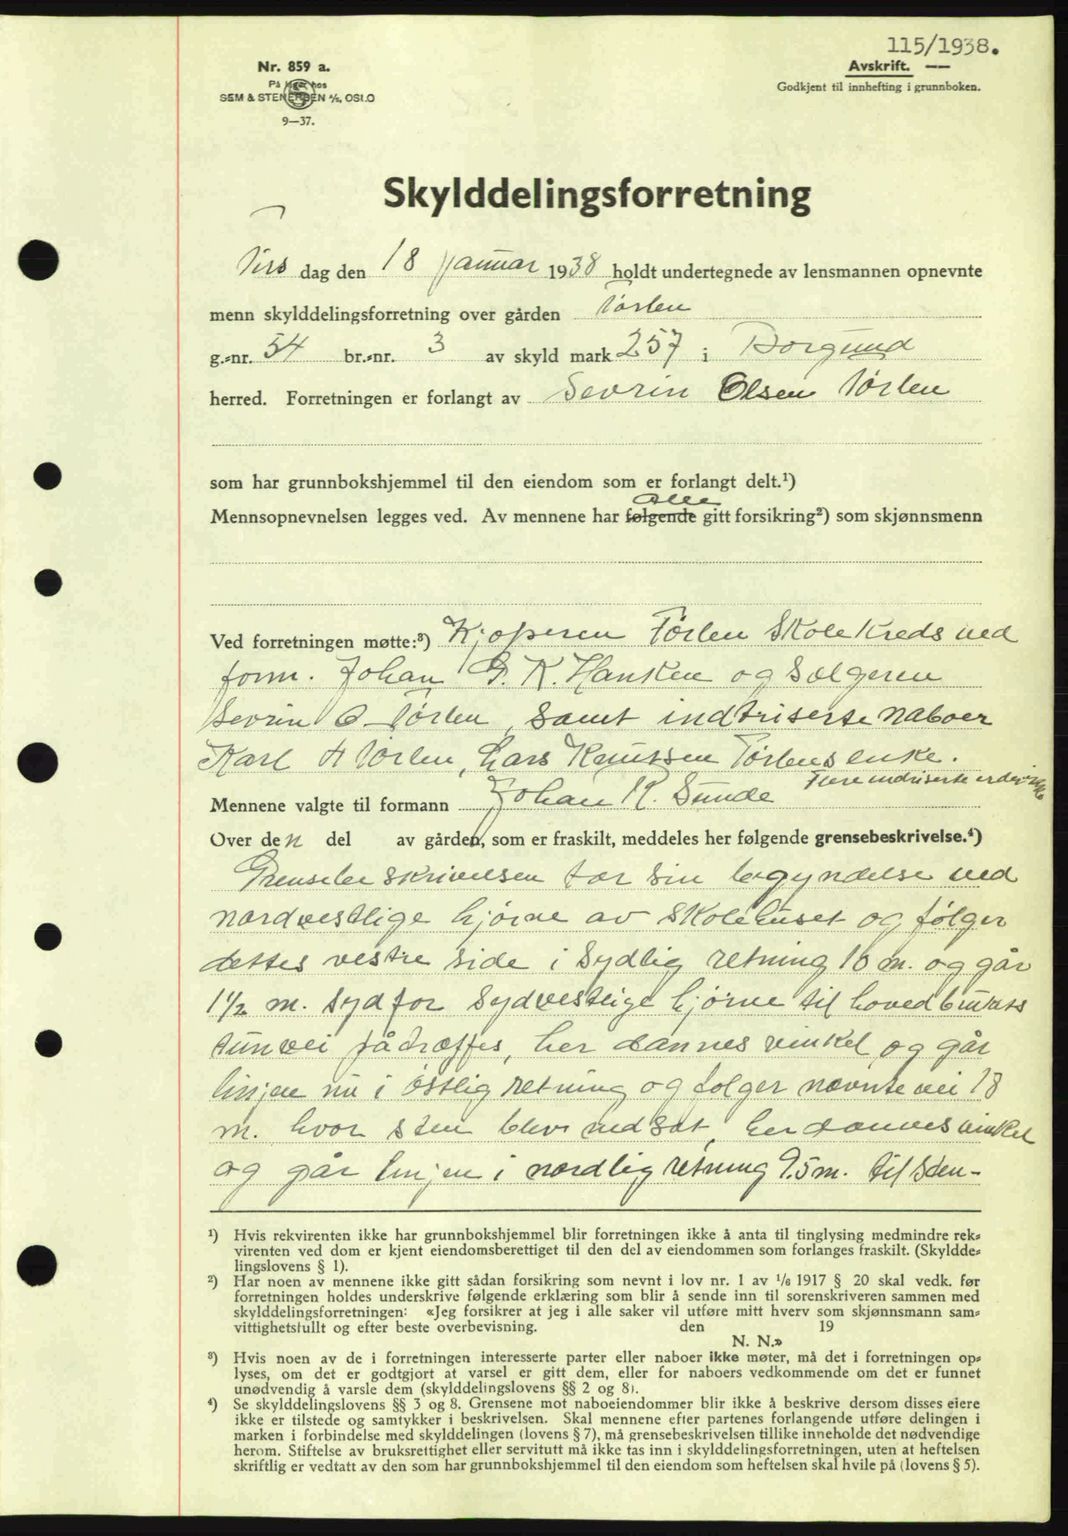 115/1938.
Nr. 859 a.
Avskrift. —
På lager hos
SEM & STENERSEN A/S, OSLO
Godkjent til innhefting i grunnboken.
9—37.
Skylddelingsforretning
Tirs dag den 18 januar 1938 holdt undertegnede av lensmannen opnevnte
menn skylddelingsforretning over gården Tørlen
g.-nr. 54 br.-nr. 3 av skyld mark 257 i Borgund
herred. Forretningen er forlangt av Sevrin Olsen Tørlen
som har grunnbokshjemmel til den eiendom som er forlangt delt.¹)
alle
Mennsopnevnelsen legges ved. Av mennene har følgende gitt forsikring²) som skjønnsmenn
Ved forretningen møtte:³) Kjøperen Tørlen Skolekreds ved
form. Johan G. K. Hansken og Sælgeren
Sevrin O Tørlen, samt indtriserte naboer
Karl H Tørlen, Lars Knutsen Tørlens enke.
Flere indriserte er der ikke
Mennene valgte til formann Johan K. Sunde
Over den del av gården, som er fraskilt, meddeles her følgende grensebeskrivelse.⁴)
Grensebeskrivelsen tar sin begyndelse ved
nordvestlige hjørne av skolehuset og følger
dettes vestre side i sydlig retning 10 m. og går
1½ m. syd for sydvestlige hjørne til hovedbrukets
tunvei påtræffes, her dannes vinkel og går
linjen nu i østlig retning og følger nævnte vei 18
m. hvor sten blev nedsat, her dannes vinkel
og går linjen i nordlig retning 9.5 m. til sten-
¹) Hvis rekvirenten ikke har grunnbokshjemmel blir forretningen ikke å anta til tinglysing medmindre rek-
virenten ved dom er kjent eiendomsberettiget til den del av eiendommen som forlanges fraskilt. (Skyldde-
lingslovens § 1).
²) Har noen av mennene ikke gitt sådan forsikring som nevnt i lov nr. 1 av 1/6 1917 § 20 skal vedk. før
forretningen holdes underskrive følgende erklæring som blir å sende inn til sorenskriveren sammen med
skylddelingsforretningen: «Jeg forsikrer at jeg i alle saker vil utføre mitt hverv som skjønnsmann sam-
vittighetsfullt og efter beste overbevisning. den 19
N. N.»
³) Hvis noen av de i forretningen interesserte parter eller naboer ikke møter, må det i forretningen op-
lyses, om det er godtgjort at varsel er gitt dem, eller for naboers vedkommende om det er funnet
unødvendig å varsle dem (skylddelingslovens §§ 2 og 8).
⁴) Se skylddelingslovens §§ 3 og 8. Grensene mot naboeiendommer blir ikke å beskrive dersom disses eiere
ikke er tilstede og samtykker i beskrivelsen. Skal mennene efter partenes forlangende utføre delingen i
marken i forbindelse med skylddelingen (lovens § 7), må grensebeskrivelsen tillike inneholde det nødvendige
herom. Stiftelse av bruksrettighet eller servitutt må ikke tas inn i skylddelingsforretningen, uten at heftelsen
skriftlig er vedtatt av den som har grunnbokshjemmel til den eiendom som heftelsen skal hvile på (lovens § 5).